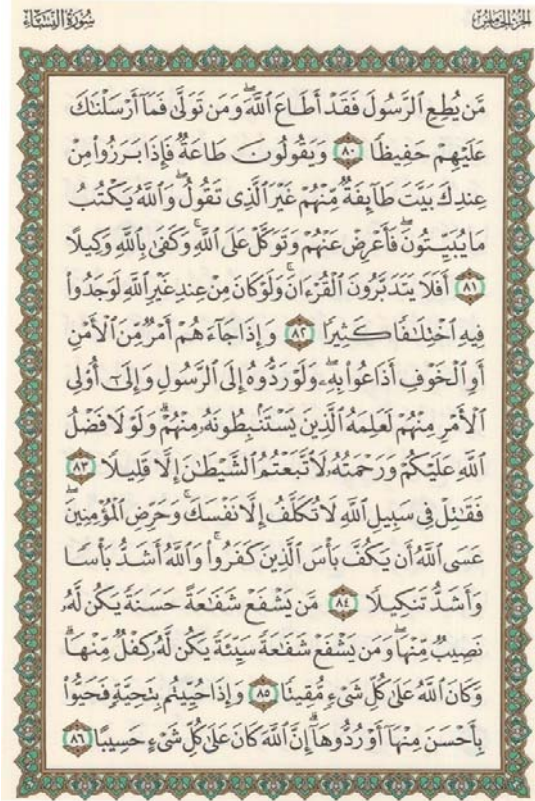 سُورَةُ النِّسَاءِ
الجُزْءُ الخَامِسُ
مَّن يُطِعِ ٱلرَّسُولَ فَقَدْ أَطَاعَ ٱللَّهَۖ وَمَن تَوَلَّىٰ فَمَآ أَرْسَلْنَٰكَ
عَلَيْهِمْ حَفِيظًا ٨٠ وَيَقُولُونَ طَاعَةٌ فَإِذَا بَرَزُوا۟ مِنْ
عِندِكَ بَيَّتَ طَآئِفَةٌ مِّنْهُمْ غَيْرَ ٱلَّذِى تَقُولُۖ وَٱللَّهُ يَكْتُبُ
مَا يُبَيِّتُونَۖ فَأَعْرِضْ عَنْهُمْ وَتَوَكَّلْ عَلَى ٱللَّهِۚ وَكَفَىٰ بِٱللَّهِ وَكِيلًا
٨١ أَفَلَا يَتَدَبَّرُونَ ٱلْقُرْءَانَۚ وَلَوْ كَانَ مِنْ عِندِ غَيْرِ ٱللَّهِ لَوَجَدُوا۟
فِيهِ ٱخْتِلَٰفًا كَثِيرًا ٨٢ وَإِذَا جَآءَهُمْ أَمْرٌ مِّنَ ٱلْأَمْنِ
أَوِ ٱلْخَوْفِ أَذَاعُوا۟ بِهِۦۖ وَلَوْ رَدُّوهُ إِلَى ٱلرَّسُولِ وَإِلَىٰٓ أُو۟لِى
ٱلْأَمْرِ مِنْهُمْ لَعَلِمَهُ ٱلَّذِينَ يَسْتَنۢبِطُونَهُۥ مِنْهُمْۗ وَلَوْلَا فَضْلُ
ٱللَّهِ عَلَيْكُمْ وَرَحْمَتُهُۥ لَٱتَّبَعْتُمُ ٱلشَّيْطَٰنَ إِلَّا قَلِيلًا ٨٣
فَقَٰتِلْ فِى سَبِيلِ ٱللَّهِ لَا تُكَلَّفُ إِلَّا نَفْسَكَۚ وَحَرِّضِ ٱلْمُؤْمِنِينَۖ
عَسَى ٱللَّهُ أَن يَكُفَّ بَأْسَ ٱلَّذِينَ كَفَرُوا۟ۚ وَٱللَّهُ أَشَدُّ بَأْسًا
وَأَشَدُّ تَنكِيلًا ٨٤ مَّن يَشْفَعْ شَفَٰعَةً حَسَنَةً يَكُن لَّهُۥ
نَصِيبٌ مِّنْهَاۖ وَمَن يَشْفَعْ شَفَٰعَةً سَيِّئَةً يَكُن لَّهُۥ كِفْلٌ مِّنْهَاۗ
وَكَانَ ٱللَّهُ عَلَىٰ كُلِّ شَىْءٍ مُّقِيتًا ٨٥ وَإِذَا حُيِّيتُم بِتَحِيَّةٍ فَحَيُّوا۟
بِأَحْسَنَ مِنْهَآ أَوْ رُدُّوهَآۗ إِنَّ ٱللَّهَ كَانَ عَلَىٰ كُلِّ شَىْءٍ حَسِيبًا ٨٦